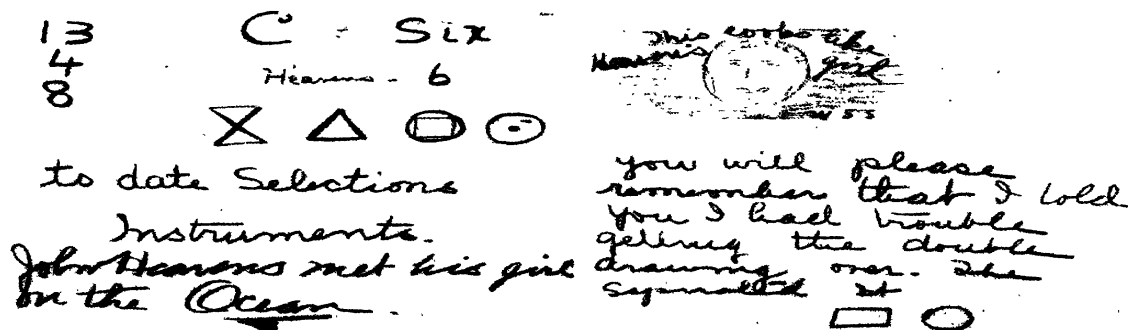 13
4
8
C - Six
Heavens - 6
to date Selections
Instruments.
John Heavens met his girl
on the Ocean.
This looks like
Heavens girl
W S S
you will please
remember that I told
you I had trouble
getting the double
drawing over. The
it